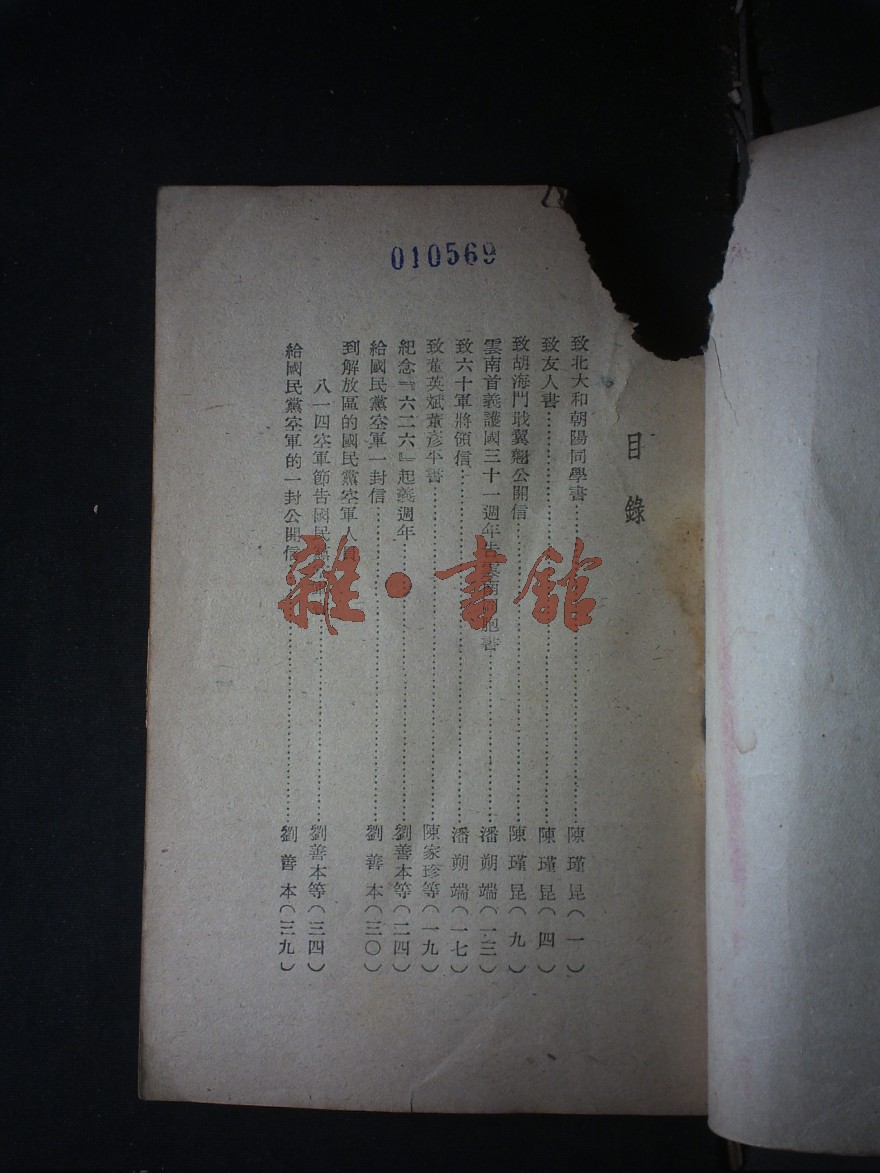 010569
目錄
致北大和朝陽同學書……陳瑾昆(一)
致友人書……陳瑾昆(四)
致胡海門戢翼翹公開信……陳瑾昆(九)
雲南首義護國三十一週年告雲南同胞書……潘朔端(一三)
致六十軍將領信……潘朔端(一七)
致董英斌董彥平書……陳家珍等(一九)
紀念『六二六』起義週年……劉善本等(二四)
給國民黨空軍一封信……劉善本(三〇)
到解放區的國民黨空軍人員
八一四空軍節告國民黨……劉善本等(三四)
給國民黨空軍的一封公開信……劉善本(三九)
雜·書館